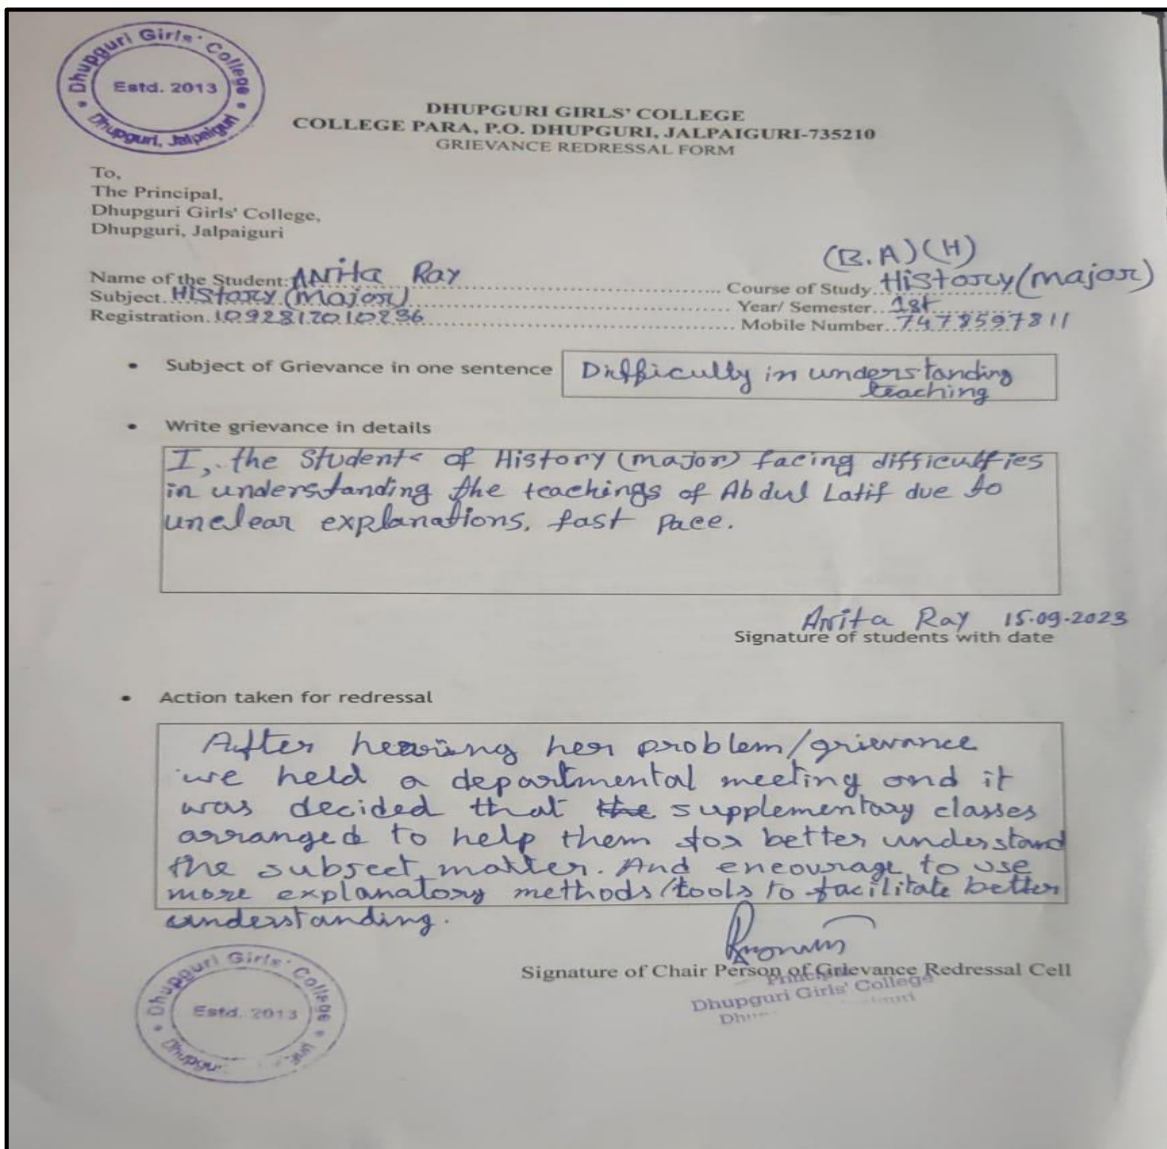 Dhupguri Girls' College
Estd. 2013
Dhupguri, Jalpaiguri
DHUPGURI GIRLS' COLLEGE
COLLEGE PARA, P.O. DHUPGURI, JALPAIGURI-735210
GRIEVANCE REDRESSAL FORM
To,
The Principal,
Dhupguri Girls' College,
Dhupguri, Jalpaiguri
(B.A)(H)
Name of the Student: Anita Ray Course of Study History (major)
Subject. History (major) Year/ Semester.. 1st
Registration. 1092812010236 Mobile Number.. 7478597811
• Subject of Grievance in one sentence Difficully in understanding
teaching
• Write grievance in details
I, the Students of History (major) facing difficulties
in understanding the teachings of Abdul Latif due to
unclear explanations, fast pace.
Anita Ray 15.09.2023
Signature of students with date
• Action taken for redressal
After hearing her problem/grievance
we held a departmental meeting and it
was decided that the supplementary classes
arranged to help them for better understand
the subject matter. And encourage to use
more explanatory methods/tools to facilitate better
understanding.
Signature of Chair Person of Grievance Redressal Cell
Principal
Dhupguri Girls' College
Dhupguri Girls' College
Estd. 2013